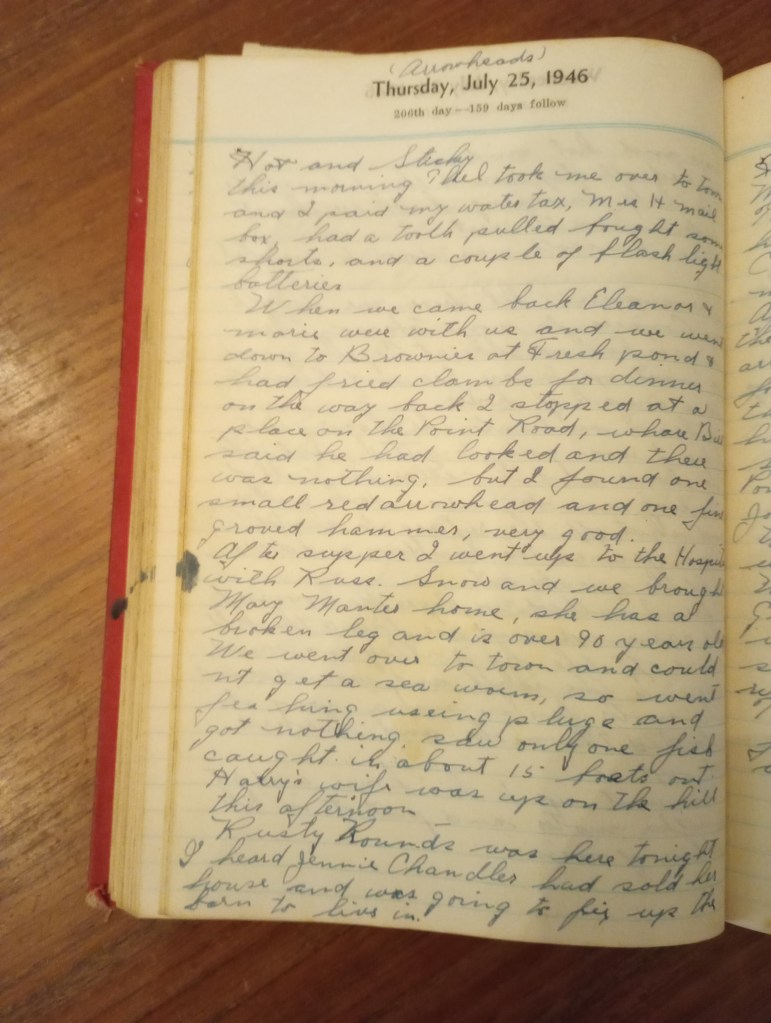 (Arrowheads)
Thursday, July 25, 1946
206th day—159 days follow
Hot and Sticky
this morning took me over to town
and I paid my water tax, Mrs H mail
box, had a tooth pulled bought som
shorts, and a couple of flash ligh
batteries
When we came back Eleanor &
marie were with us and we wen
down to Brownies at Fresh pond &
had fried clams for dinner
on the way back I stopped at a
place on the Point Road, whare Bi
said he had looked and there
was nothing, but I found one
small red arrowhead and one fin
groved hammer, very good.
After supper I went up to the Hospi
with Russ. Snow and we brough
Mary Manter home, she has a
broken leg and is over 90 years ol
We went over to town and could
nt get a sea worm, so went
fishing useing plugs and
got nothing saw only one fish
caught in about 15 boats out
Harry's wife was up on the hill
this afternoon
Rusty Rounds was here tonight
I heard Jennie Chandler had sold her
house and was going to fix up the
barn to live in.